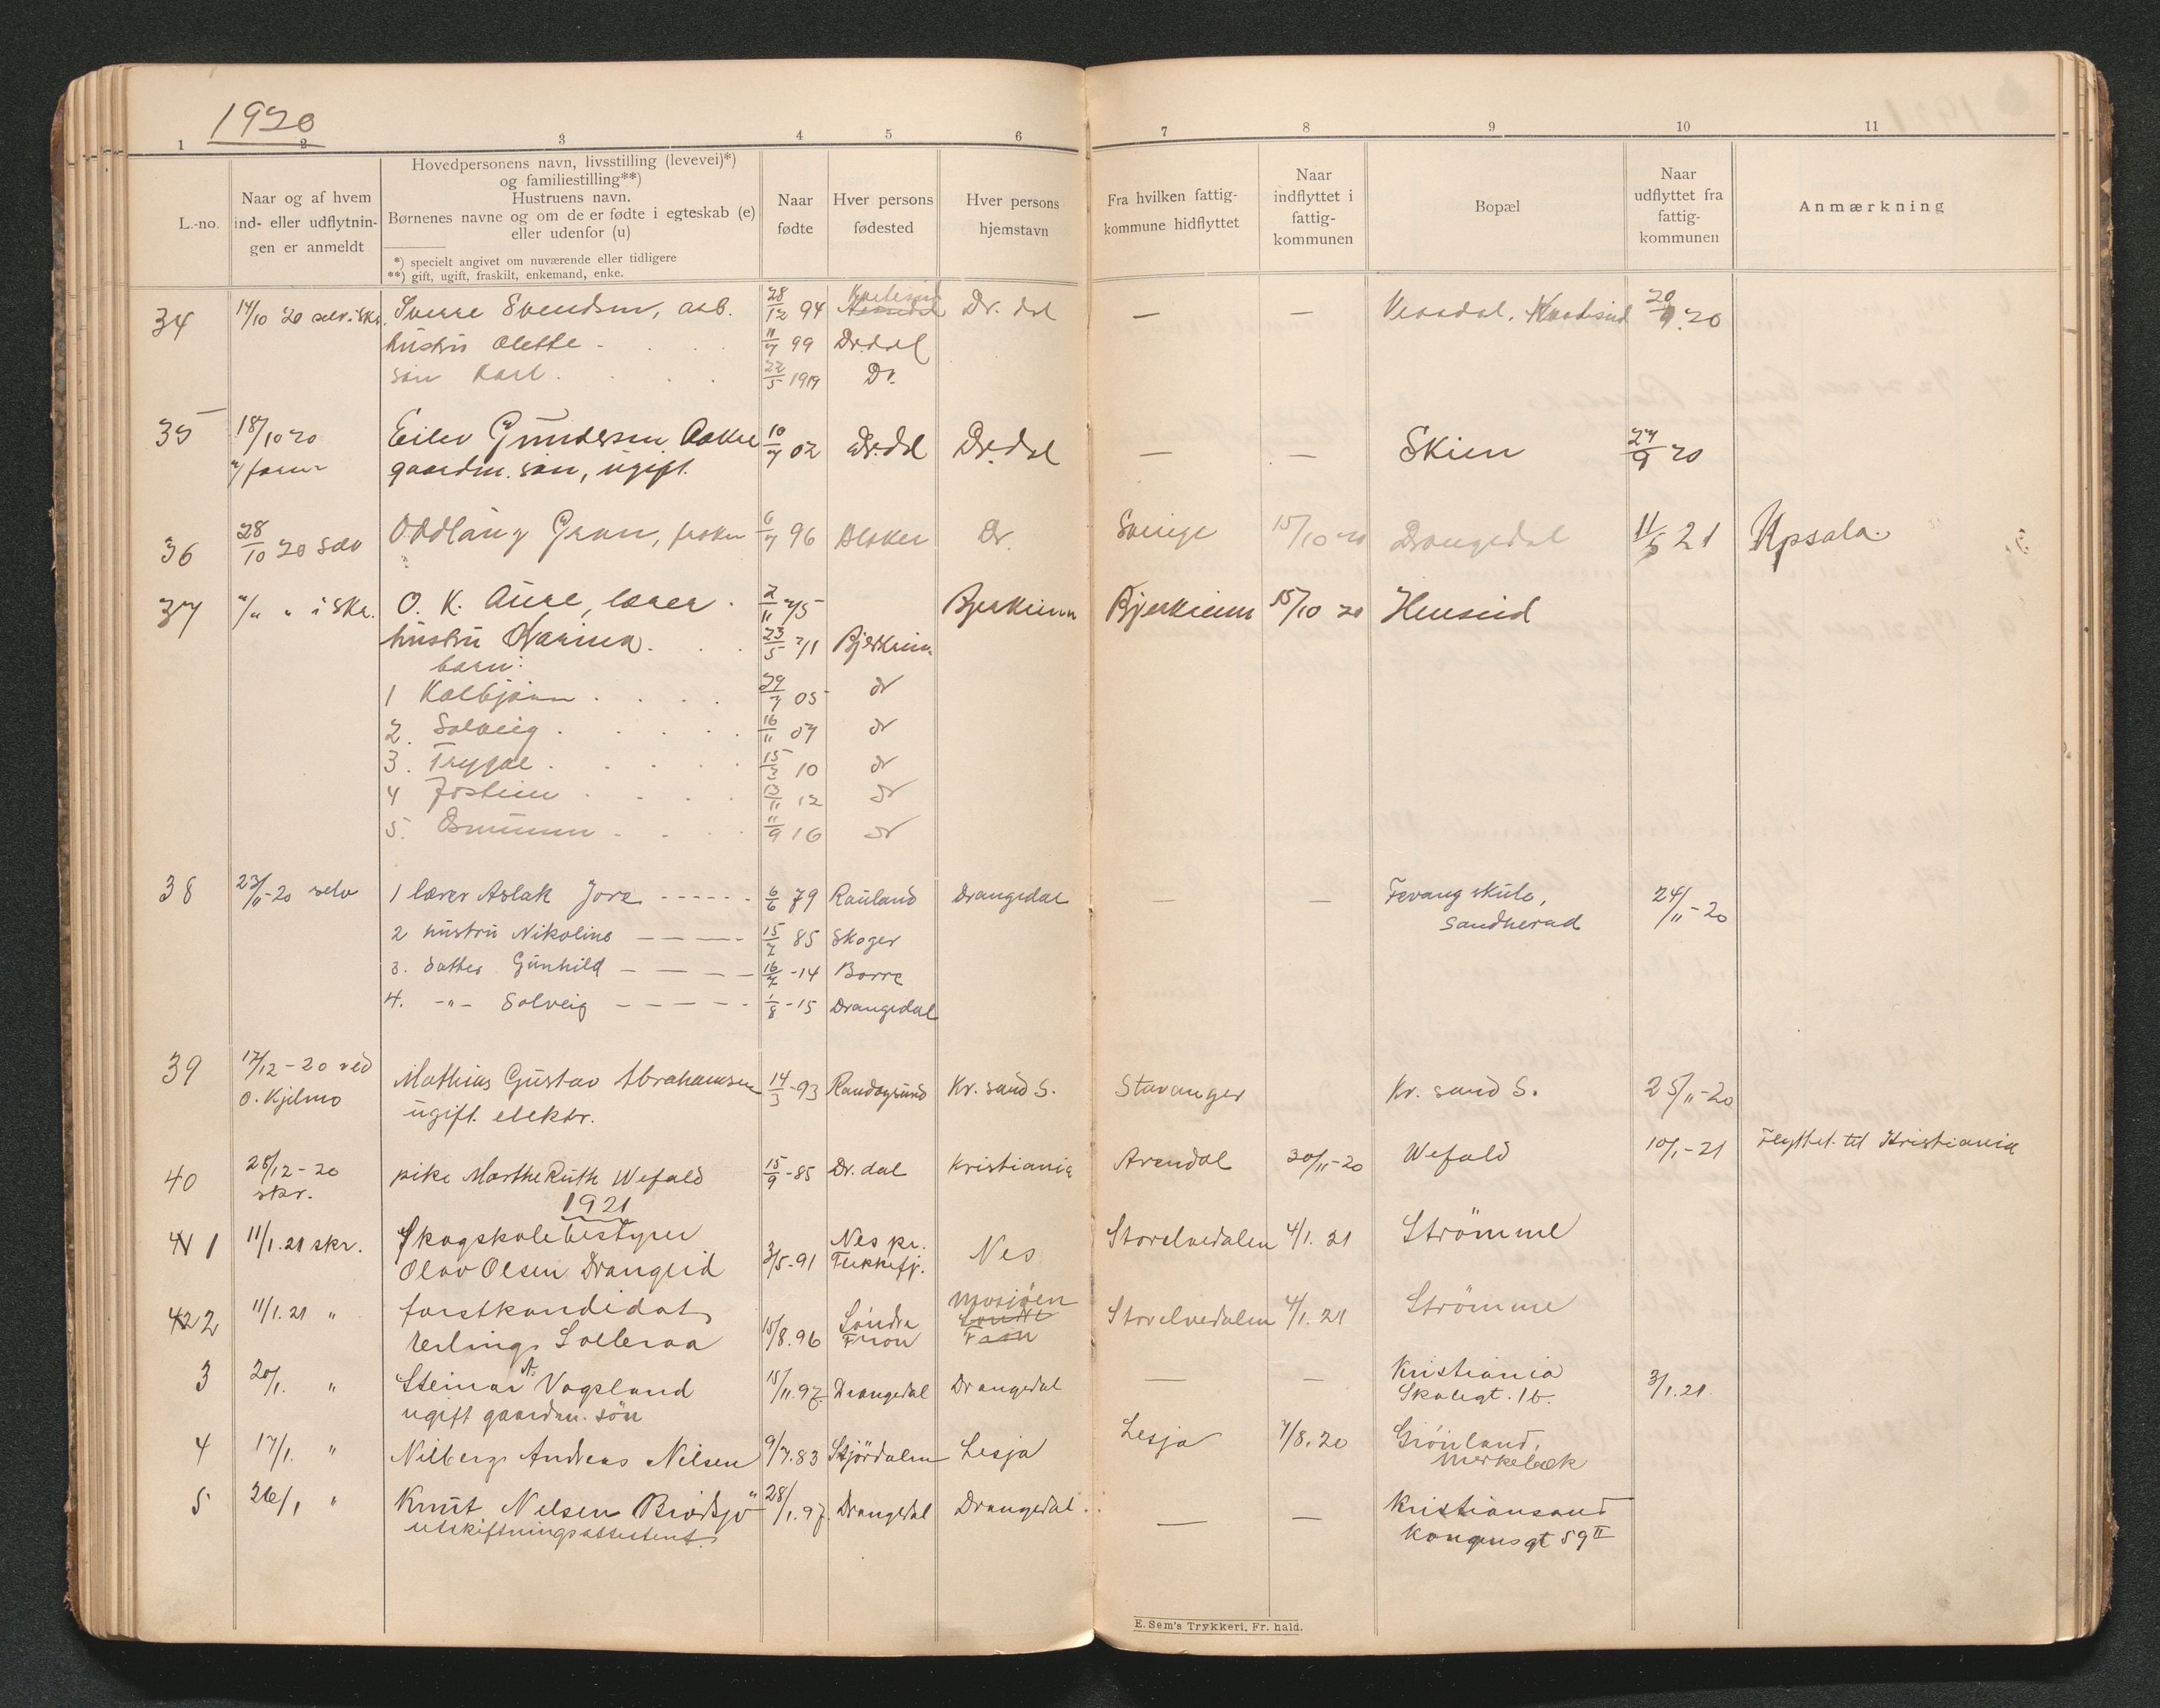 1920
1 2 3 4 5 6 7 8 9 10 11
L.-no.
Naar og af hvem
ind- eller udflytnin-
gen er anmeldt
Hovedpersonens navn, livsstilling (levevei)*)
og familiestilling**)
Hustruens navn.
Børnenes navne og om de er fødte i egteskab (e)
eller udenfor (u)
*) specielt angivet om nuværende eller tidligere
**) gift, ugift, fraskilt, enkemand, enke.
Naar
fødte
Hver persons
fødested
Hver persons
hjemstavn
Fra hvilken fattig-
kommune hidflyttet
Naar
indflyttet i
fattig-
kommunen
Bopæl
Naar
udflyttet fra
fattig-
kommunen
Anmærkning
34 14/10 20 selv i skr. Sverre Svendsen, arb. 28/12 94 Dr. dal — — 20/9 20
hustru Olette 11/7 99 Dr.dal
søn Karl 22/5 1919 Dr.
35 18/10 20 Eilev Gundersen 10/7 02 Dr.dal Dr.dal — — Skien 27/9 20
v/ faren gaardm. søn, ugift.
36 28/10 20 Selv Oddlaug Gran, frøken 6/7 96 Aker Dr. Sverige 15/10 20 Drangedal 11/5 21 Upsala.
37 "/" " i skr. O. K. Aure, lærer 2/11 75 Bjerkreim Bjerkreim 15/10 20 Henseid
hustru Karina 23/5 71 Bjerkreim
barn:
1 Kolbjørn 29/7 05 do
2. Solveig 16/11 07 do
3. Trygve 15/3 10 do
4 Jostein 13/11 12 do
5. Osmunn 11/9 16 do
38 23/11-20 selv 1 lærer Aslak Jore 6/6 79 Rauland Drangedal — — Fevang skule, 24/11-20
Sandherad
2 hustru Nikoline 15/7 85 Skoger
3. datter Gunhild 16/7-14 Borre
4. -"- Solveig 1/8-15 Drangedal
39 17/12-20 ved Mathias Gustav Abrahamsen 14/3-93 Randøysund Kr.sand S. Stavanger Kr.sand S. 25/11-20
O. Kjelmo ugift. elektr.
40 28/12-20 pike Marthe Ruth Wefald 15/9-85 Dr.dal Kristiania Arendal 30/11-20 Wefald 10/1-21 Flyttet til Kristiania
skr.
1921
1 11/1.21 skr. Skogskolebestyrer 3/5-91 Nes pr. Nes Storelvedalen 4/1.21 Strömme
Olav Olsen Drangeid Flekkefj.
2 11/1.21 " forstkandidat 15/8.96 Söndre Mosjöen Storelvedalen 4/1.21 Strömme
Erling Solleraa Fron Söndre Fron
3 20/1. " Steinar A. Vogsland 15/11.97. Drangedal Drangedal — — Kristiania 3/1.21.
ugift gaardm. sön Skolegt. 16.
4 17/1. " Nilberg Andreas Nilsen 9/7.83 Stjördalen Lesja Lesja 7/8.20 Grönland,
Merkebæk
5 26/1 " Knut Nelsen Brödsjö 28/1.97. Drangedal Drangedal — — Kristiansand
utskiftningsassistent. Kongensgt 59 II
E. Sem's Trykkeri, Fr. hald.